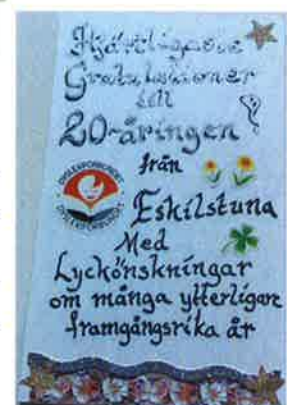 Hjärtligaste
Gratulationer
till
20-åringen
från
Eskilstuna
Med
Lyckönskningar
om många ytterligare
framgångsrika år